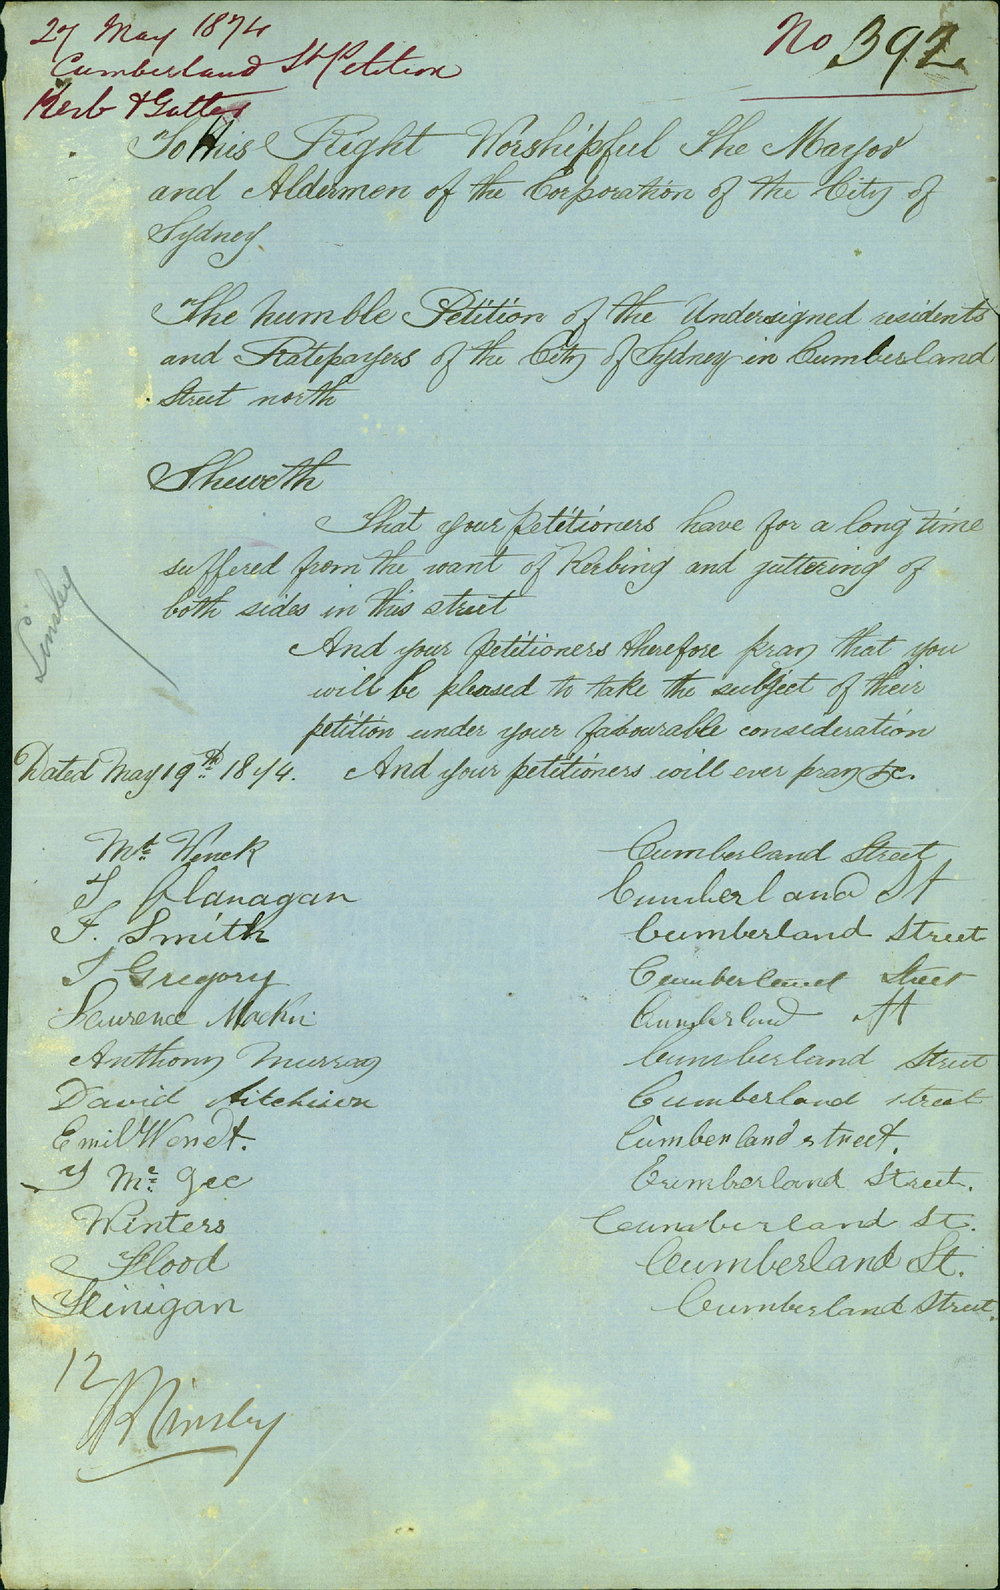 27 May 1874
No 392
Cumberland St Petition
Kerb & Gutter
To His Right Worshipful The Mayor
and Aldermen of the Corporation of the City of
Sydney.
The humble Petition of the Undersigned residents
and Ratepayers of the City of Sydney in Cumberland
Street north
Sheweth
That your petitioners have for a long time
suffered from the want of Kerbing and guttering of
both sides in this street
And your petitioners therefore pray that you
will be pleased to take the subject of their
petition under your favourable consideration
Dated May 19th 1874. And your petitioners will ever pray &c.
Mr. Wenck Cumberland Street
T Flanagan Cumberland St
F. Smith Cumberland Street
T Gregory Cumberland Street
Lawrence Mackin Cumberland St
Anthony Murray Cumberland Street
David Aitchison Cumberland street
Emil Wendt. Cumberland street.
Mc Gee Cumberland Street.
Winters Cumberland St.
Flood Cumberland St.
Flinigan Cumberland Street.
12